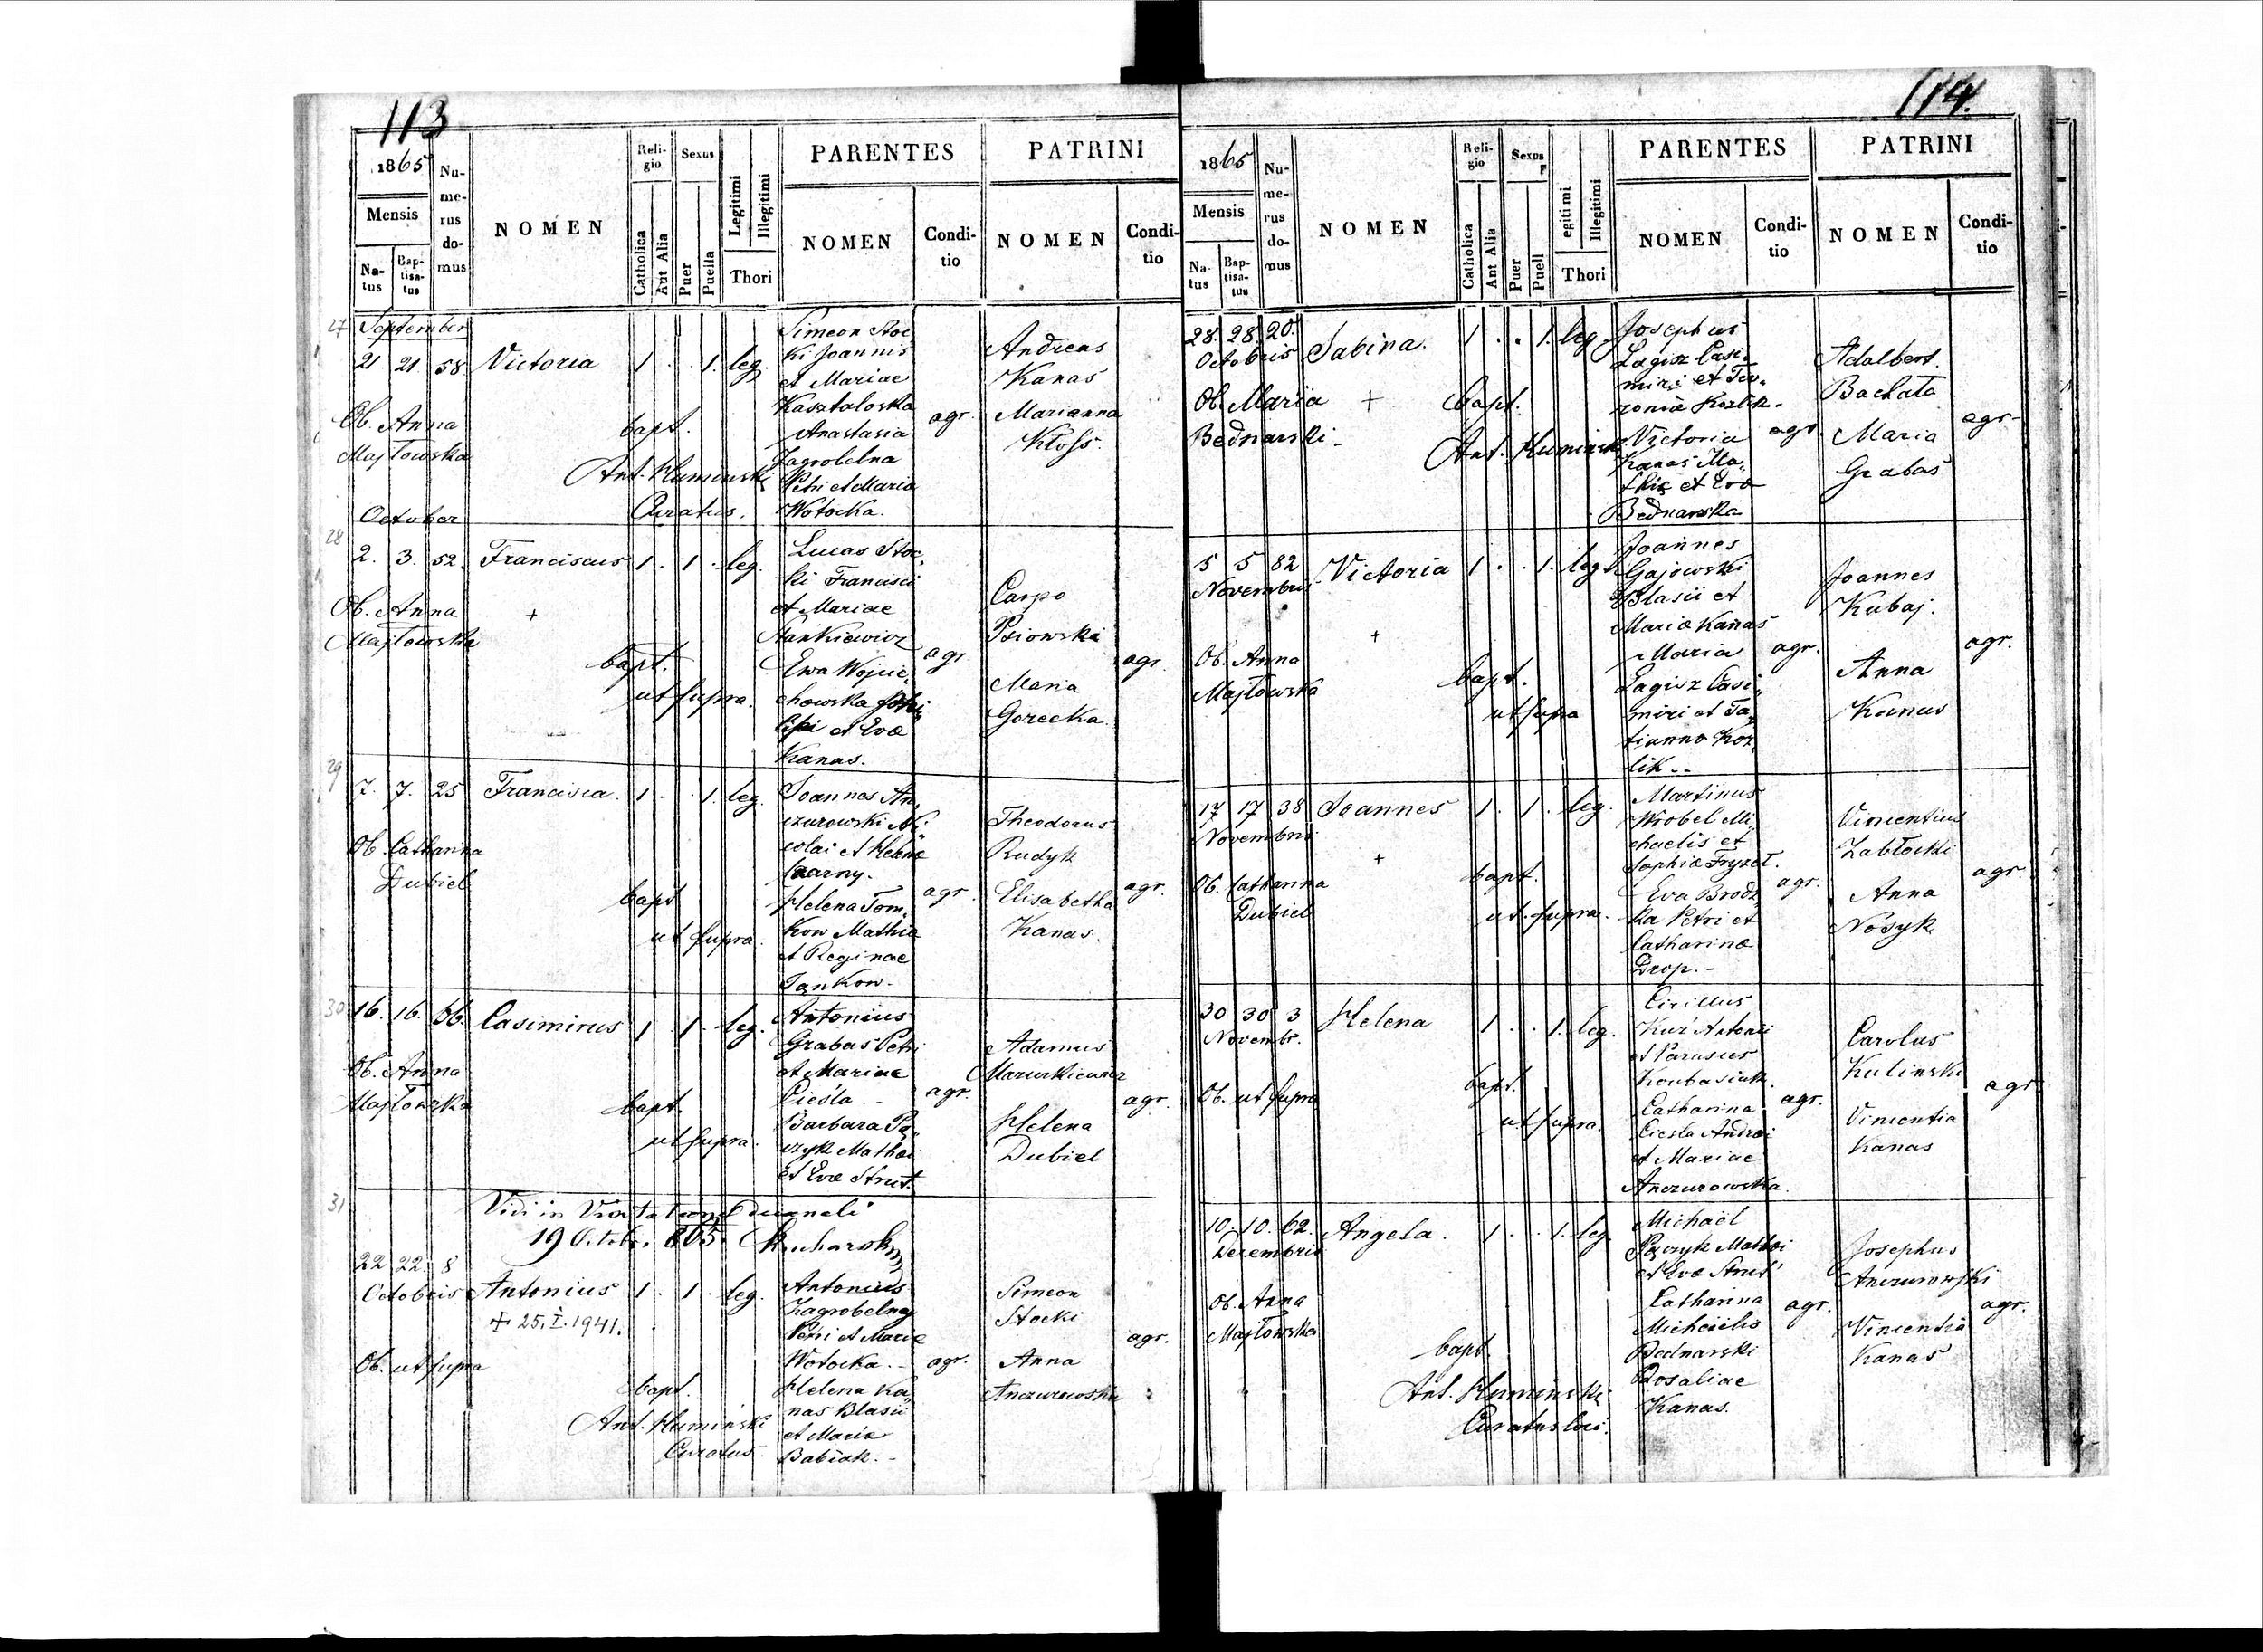 113
1865
Mensis
Na-
tus
Bap-
tisa-
tus
Nu-
me-
rus
do-
mus
NOMEN
Reli-
gio
Catholica
Aut Alia
Sexus
Puer
Puella
Legitimi
Illegitimi
Thori
PARENTES
NOMEN
Condi-
tio
PATRINI
NOMEN
Condi-
tio
27 September
21. 21. 58 Victoria 1 . . 1. leg.
Simeon Stoc
ki Joannis
et Mariae
Kasztaloska
Anastasia
Zagrobelna
Petri et Maria
Wotocka.
agr.
Andreas
Kanas
Marianna
Kłoss.
Ob. Anna
Majtowska
bapt.
Ant. Huminski
Curatus.
October
28
2. 3. 52. Franciscus 1. . 1 . leg.
+
Lucas Stoc
ki Francisci
et Mariae
Stankiewicz
Ewa Wojcie
chowska
et Evæ
Kanas.
agr
Carpo
Psiowski
Maria
Gorecka.
agr.
Ob. Anna
Majtowska
bapt.
ut supra.
29
7. 7. 25 Francisca. 1 . . 1. leg.
Joannes An
czurowski Ni
colai et Helenæ
Czarny.
Helena Tom
kow Mathiæ
et Reginae
Jankow-
agr.
Theodorus
Rudyk
Elisabetha
Kanas.
agr.
Ob. Catharina
Dubiel
bapt
ut supra.
30
16. 16. 86. Casimirus 1 . 1 . leg.
Antonius
Grabas Petri
et Mariae
Cieśla -
Barbara Pą
czyk Mathæi
et Evæ Strut.
agr.
Adamus
Mazurkiewicz
Helena
Dubiel
agr.
Ob. Anna
Majtowska
bapt.
ut supra.
31
Vidi in Visitatione Decanali
19 Octobr. 865.
22 22. 8
Octobris Antonius 1 . 1 . leg.
+ 25. I. 1941.
Antonius
Zagrobelny
Petri et Mariæ
Wotocka. -
Helena Ka
nas Blasii
et Mariæ
Babiak. -
agr.
Simeon
Stocki
Anna
Anczurowska
agr.
Ob. ut supra
bapt.
Ant. Humiński
Curatus.
114.
1865
Mensis
Na-
tus
Bap-
tisa-
tus
Nu-
me-
rus
do-
mus
NOMEN
Reli-
gio
Catholica
Ant Alia
Sexus
Puer
Puell
egiti mi
Illegitimi
Thori
PARENTES
NOMEN
Condi-
tio
PATRINI
NOMEN
Condi-
tio
28. 28. 20.
Octobris Sabina. 1 . . 1. leg.
Josephus
Łagisz Casi
miri et Fev
roniæ Kozlik-
Victoria
Kanas Ma
thiæ et Evæ
Bednarska
agr
Adalbert.
Bachata
Maria
Grabas
agr-
Ob. Maria +
Bednarski-
bapt.
Ant. Huminski
5 5 82
Novembris Victoria 1 . . 1. leg.
+
Joannes
Gajowski
Blasii et
Mariæ Kanas
Maria
Łagisz Casi
miri et Ta
tianna Koz
lik --
agr.
Joannes
Kubaj.
Anna
Kanas
agr.
Ob. Anna
Majtowska
bapt.
ut supra
17 17 38 Joannes 1. . 1 . leg.
Novembris
+
Martinus
Wrobel Mi
chaelis et
Sophiæ Fryzeł.
Eva Brodz
ka Petri et
Catharinæ
Drop. -
agr.
Vincentius
Zabłocki
Anna
Nosyk
agr.
Ob. Catharina
Dubiel
bapt.
ut supra.
30 30 3 Helena 1 . . 1. leg.
Novembr.
Cirillus
Kuź Antonii
et Parasces
Koubasiuk.
Catharina
Ciesla Andreæ
et Mariae
Anczurowska.
agr.
Carolus
Kulinski
Vincentia
Kanas
agr
Ob. ut supra
bapt.
ut supra.
10. 10. 62. Angela. 1 . . 1. leg.
Dezembris
Michael
Pączyk Mathæi
et Evæ Strut
Catharina
Michaelis
Bednarski
Rosaliae
Kanas.
agr.
Josephus
Anczurowski
Vincentia
Kanas
agr.
Ob. Anna
Majtowska
bapt
Ant. Huminski
Curatus loci.